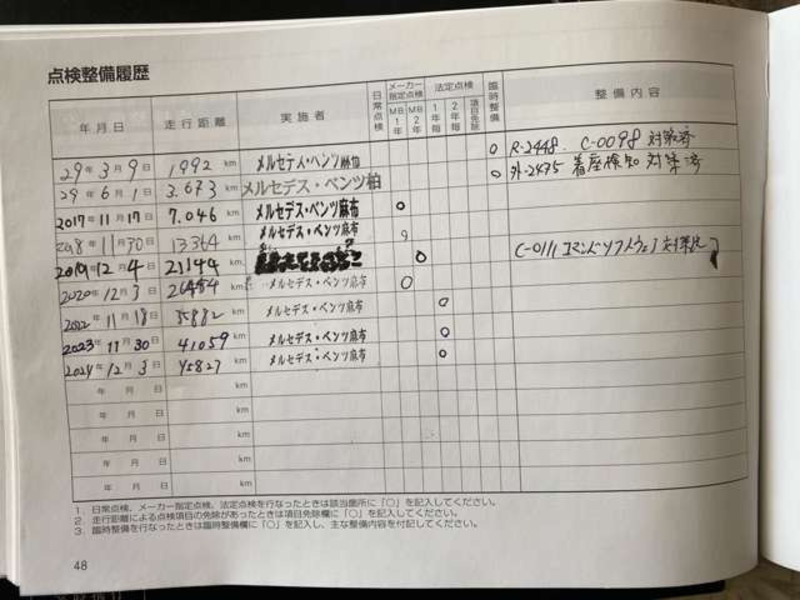 点検整備履歴
年月日 走行距離 実施者 日常点検 メーカー指定点検 MB1年 MB2年 法定点検 1年毎 2年毎 項目免除 臨時整備 整備内容
29年3月9日 1992 km メルセデス・ベンツ麻布 ○ R-2448. C-0098 対策済
29年6月1日 3.673 km メルセデス・ベンツ柏 ○ 外-2475 着座検知 対策済
2017年11月17日 7.046 km メルセデス・ベンツ麻布 ○
2018年11月30日 13364 km メルセデス・ベンツ麻布 ○
2019年12月4日 21144 km ○ C-0111 コマンドソフトウェア
2020年12月3日 26484 km メルセデス・ベンツ麻布 ○
2022年11月18日 35882 km メルセデス・ベンツ麻布 ○
2023年11月30日 41059 km メルセデス・ベンツ麻布 ○
2024年12月3日 45827 km メルセデス・ベンツ麻布 ○
年 月 日 km
年 月 日 km
年 月 日 km
年 月 日 km
年 月 日 km
1. 日常点検、メーカー指定点検、法定点検を行なったときは該当箇所に「○」を記入してください。
2. 走行距離による点検項目の免除があったときは項目免除欄に「○」を記入してください。
3. 臨時整備を行なったときは臨時整備欄に「○」を記入し、主な整備内容を付記してください。
48